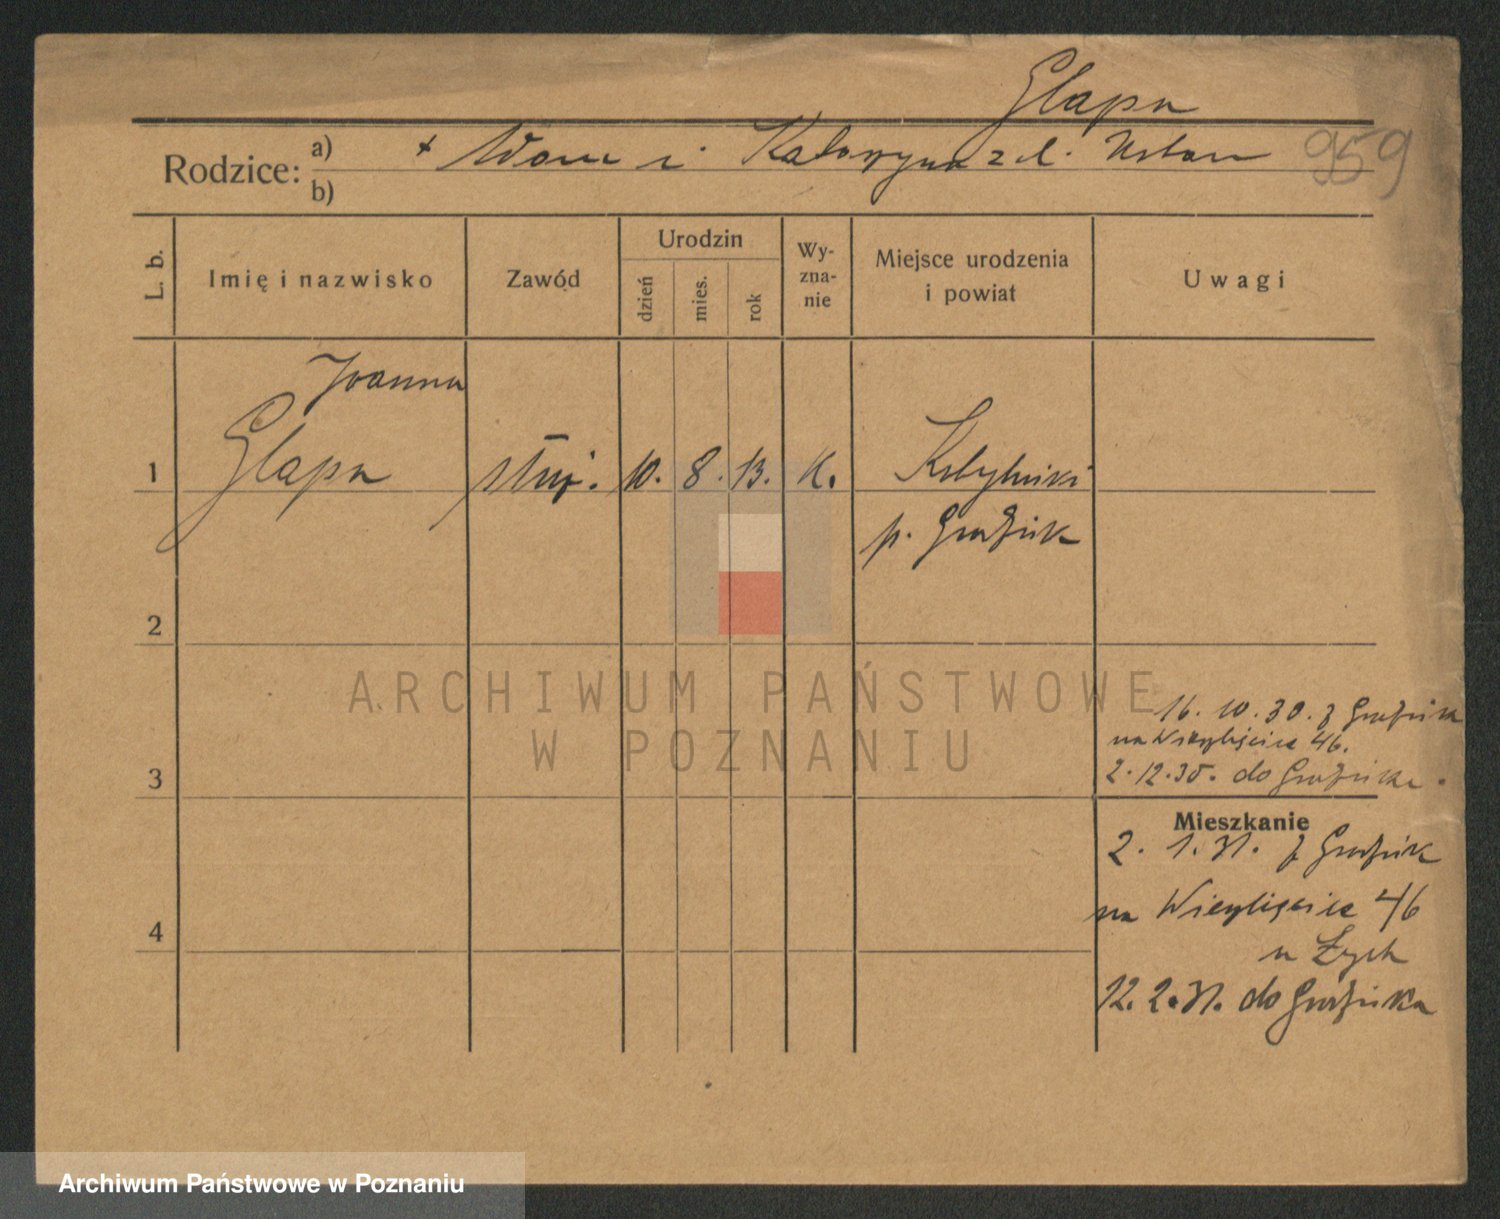 Glapa
Rodzice: a) + Adam i Katarzyna z d. Urban 959
b)
L. b. Imię i nazwisko Zawód Urodzin dzień mies. rok Wy-zna-nie Miejsce urodzenia i powiat Uwagi
Joanna
1 Glapa służ. 10. 8. 13. K. Kobylniki
p. Grodzisk
2
ARCHIWUM PAŃSTWOWE
W POZNANIU
16. 10. 30. z Grodziska
na 46.
3 2. 12. 30. do Grodziska.
Mieszkanie
2. 1. 31. z Grodzisk
na 46
4 u
12. 2. 31. do Grodziska
Archiwum Państwowe w Poznaniu